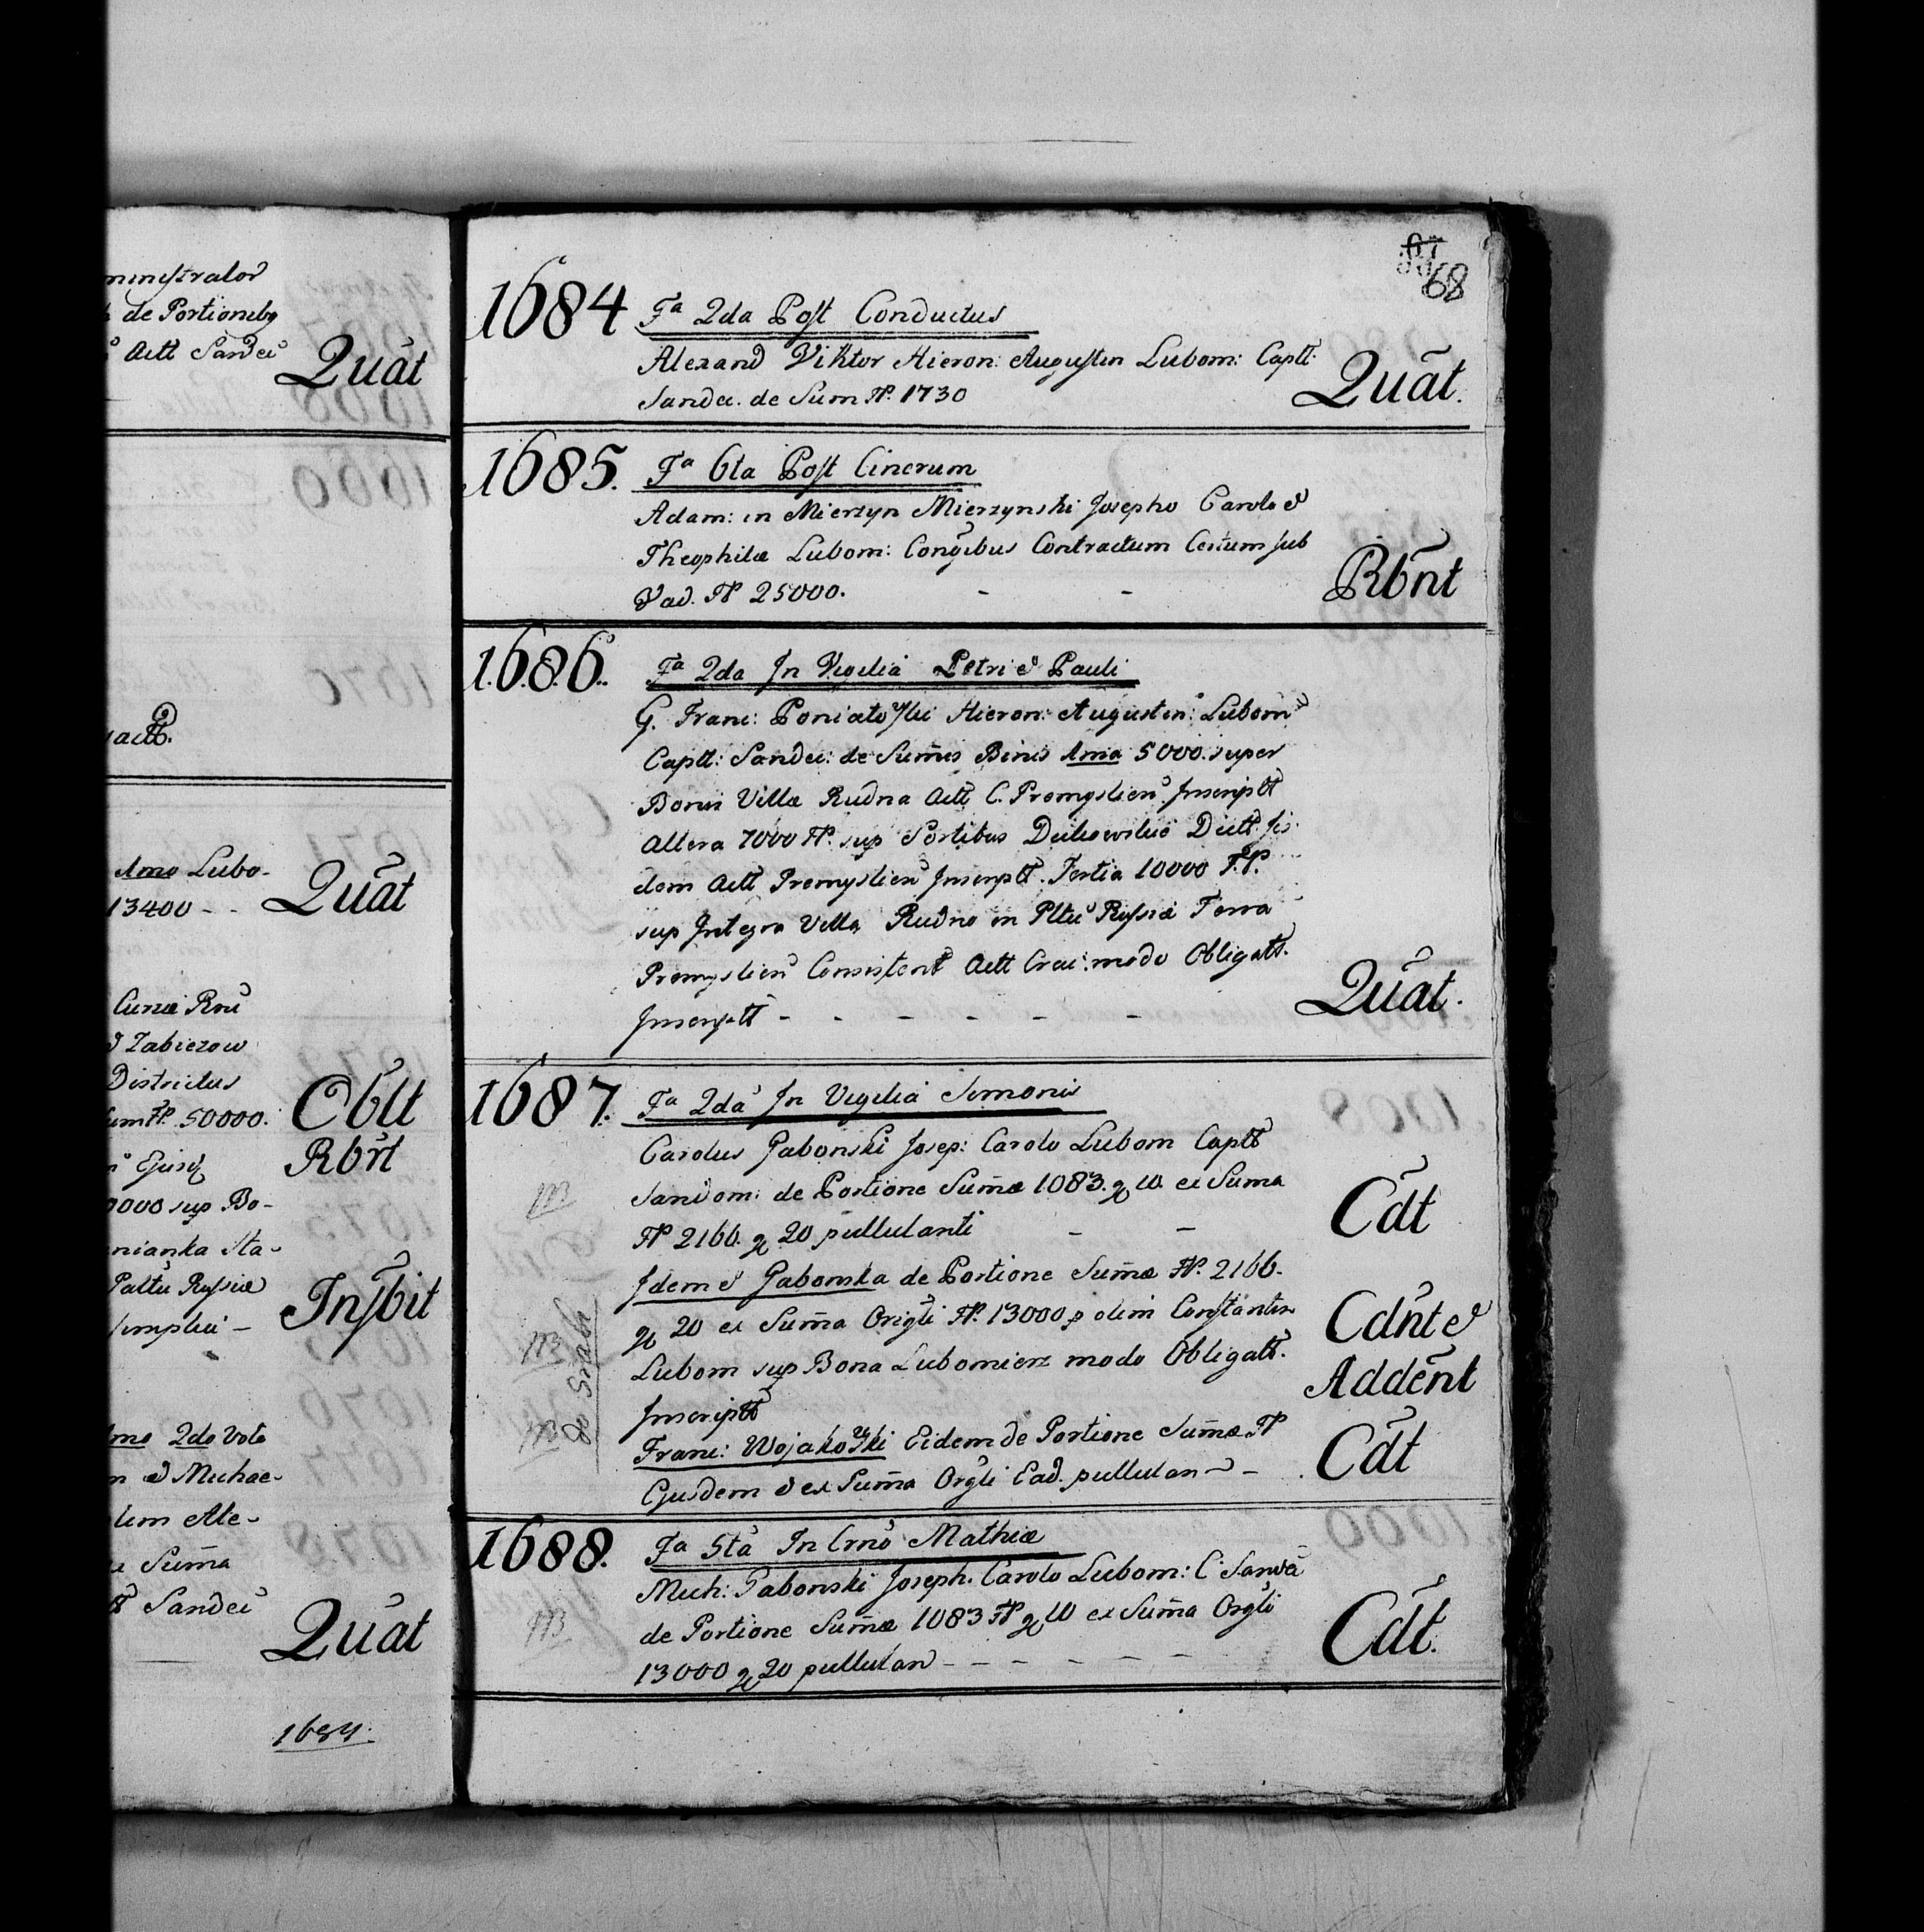 ministrator
de Portionibq
Actt Sandeć Quãt
actt.
Amo Lubo-
13400 - - Quãt
Curiæ Rni
Zabiezow
Districtus
FP. 50000. Oblt
Ejusq Rbnt
sup Bo-
nianka Sta-
Paltu Russiæ Insbit
simplici -
2do Voto
Michae-
olim Ale-
Suma
Sandec
Quãt
1684.
67
68
1684 Fa 2da Post Conductus
Alexand Viktor Hieron: Augustin Lubom: Captt:
Sandec. de Sum FP. 1730 Quãt.
1685. Fa 6ta Post Cinerum
Adam: in Mierzyn Mierzynski Josepho Carolo et
Theophilæ Lubom: Congibus Contractum Certum sub
Vad. FP 25000. - - Rbnt
1686. Fa 2da In Vigilia Petri et Pauli
G. Franc: Poniatoski Hieron: Augustin: Lubom
Captt: Sandec: de Sumis Binis Ama 5000. super
Bonis Villæ Rudna Actt C. Premyslien Inscriptt
Altera 7000 FP. sup Sortibus Dictt
dem Actt Premyslien Inscriptt. Tertia 10000 F.P.
sup Integra Villa Rudno in Pltu Russiæ Terra
Premyslien Consistent Actt Crac: modo Obligatt.
Inscriptt - - - - - - Quãt.
1687. Fa 2da In Vigilia Simonis
Carolus Gabonski Josep: Carolo Lubom Captt
Sandom: de Portione Sumæ 1083. g 10 ex Suma
FP 2166. g 20 pullulanti - - Cdt
Idem et Gabonska de Portione Sumæ FP. 2166.
g 20 ex Suma Origli FP. 13000 p olim Constantin Cdnt et
Lubom sup Bona Lubomierz modo Obligatt. Addent
Inscriptt
Franc: Wojakoski Eidem de Portione Sumæ FP
Ejusdem et ex Suma Orgli Ead. pullulan - Cdt
1688. Fa 5ta In Crno Mathiæ
Mich: Gabonski Joseph. Carolo Lubom: C Sande
de Portione Sumæ 1083 FP g 10 ex Suma Orgli
13000 g 20 pullulan - - - - - - Cdt.